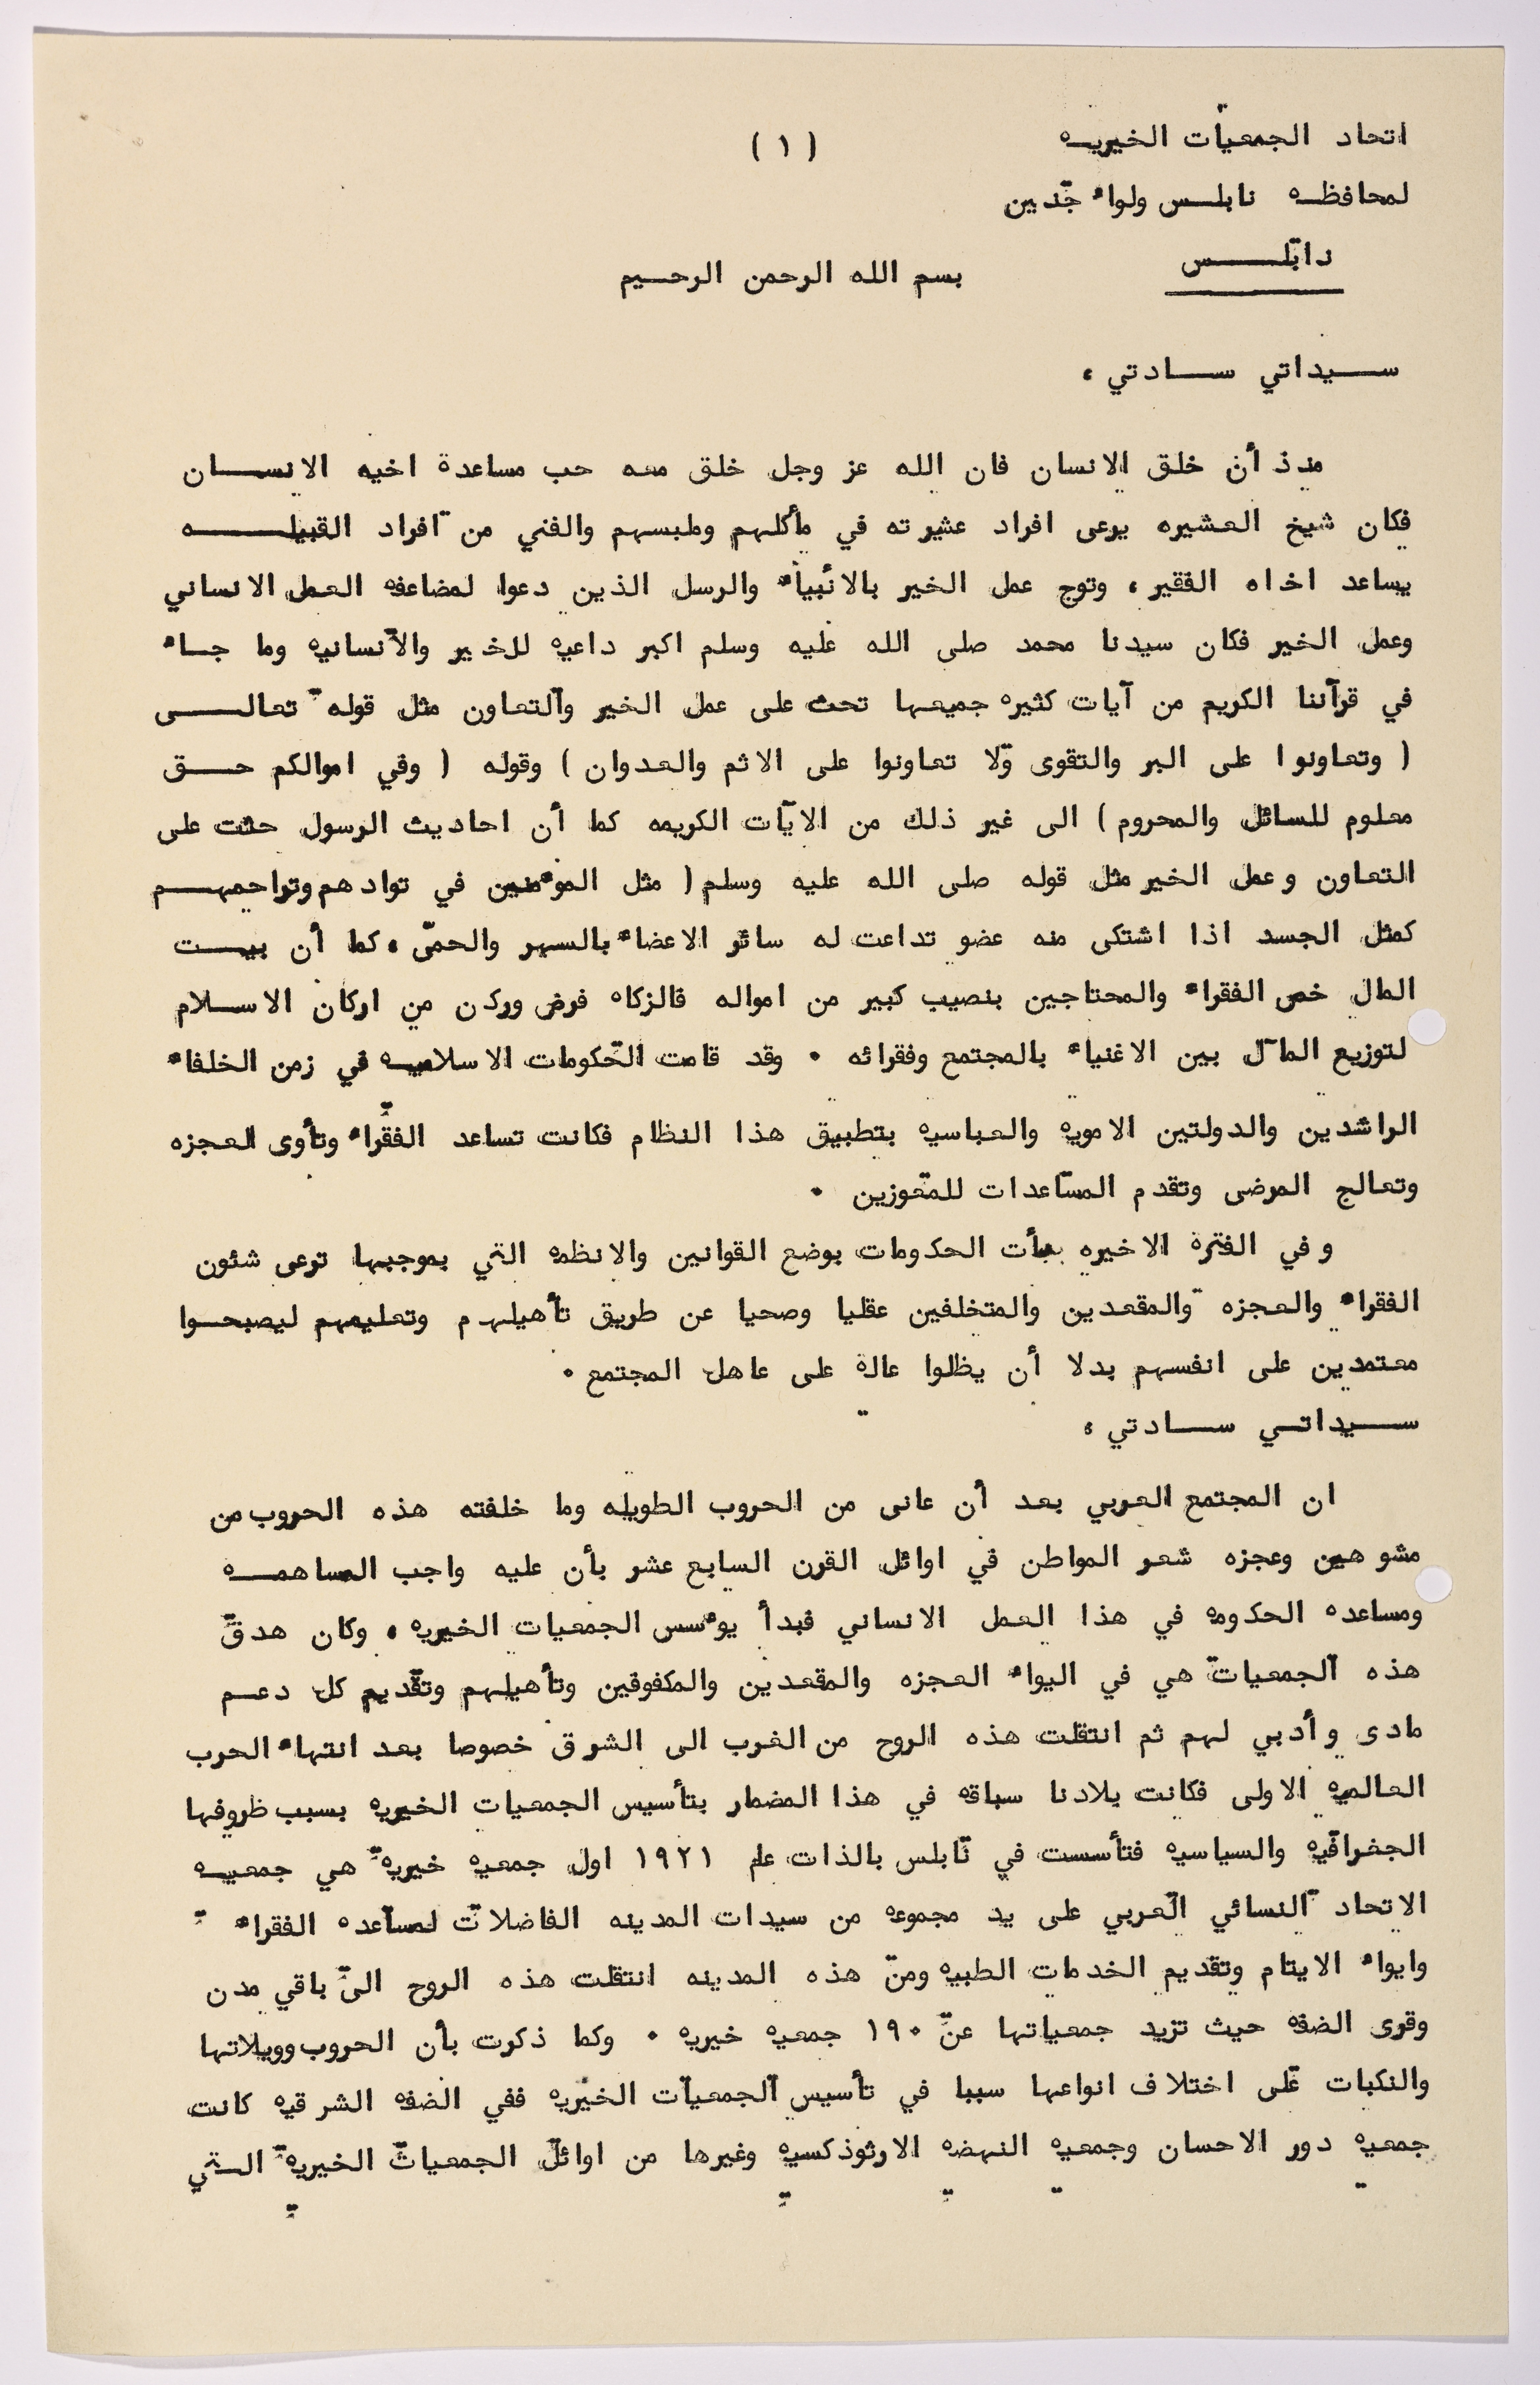 اتحاد الجمعيات الخيريه
( ١ )
لمحافظه نابلس ولواء جنين
نابلس
بسم الله الرحمن الرحيم
سيداتي سادتي ،
منذ أن خلق الانسان فان الله عز وجل خلق معه حب مساعدة اخيه الانسان
فكان شيخ العشيره يرعى افراد عشيرته في مأكلهم وملبسهم والغني من افراد القبيله
يساعد اخاه الفقير ، وتوج عمل الخير بالانبياء والرسل الذين دعوا لمضاعفه العمل الانساني
وعمل الخير فكان سيدنا محمد صلى الله عليه وسلم اكبر داعيه للخير والانسانيه وما جاء
في قرآننا الكريم من آيات كثيره جميعها تحث على عمل الخير والتعاون مثل قوله تعالى
( وتعاونوا على البر والتقوى ولا تعاونوا على الاثم والعدوان ) وقوله ( وفي اموالكم حق
معلوم للسائل والمحروم ) الى غير ذلك من الايات الكريمه كما أن احاديث الرسول حثت على
التعاون وعمل الخير مثل قوله صلى الله عليه وسلم ( مثل الموءمنين في توادهم وتراحمهم
كمثل الجسد اذا اشتكى منه عضو تداعت له سائر الاعضاء بالسهر والحمى ، كما أن بيت
المال خص الفقراء والمحتاجين بنصيب كبير من امواله فالزكاه فرض وركن من اركان الاسلام
لتوزيع المال بين الاغنياء بالمجتمع وفقرائه . وقد قامت الحكومات الاسلاميه في زمن الخلفاء
الراشدين والدولتين الامويه والعباسيه بتطبيق هذا النظام فكانت تساعد الفقراء وتأوى العجزه
وتعالج المرضى وتقدم المساعدات للمعوزين .
وفي الفترة الاخيره بدأت الحكومات بوضع القوانين والانظمه التي بموجبها ترعى شئون
الفقراء والعجزه والمقعدين والمتخلفين عقليا وصحيا عن طريق تأهيلهم وتعليمهم ليصبحوا
معتمدين على انفسهم بدلا أن يظلوا عالة على عاهل المجتمع .
سيداتي سادتي ،
ان المجتمع العربي بعد أن عانى من الحروب الطويله وما خلفته هذه الحروب من
مشوهين وعجزه شعر المواطن في اوائل القرن السابع عشر بأن عليه واجب المساهمه
ومساعده الحكومه في هذا العمل الانساني فبدأ يوءسس الجمعيات الخيريه ، وكان هدق
هذه الجمعيات هي في اليواء العجزه والمقعدين والمكفوفين وتأهيلهم وتقديم كل دعم
مادى وأدبي لهم ثم انتقلت هذه الروح من الغرب الى الشرق خصوصا بعد انتهاء الحرب
العالميه الاولى فكانت بلادنا سباقه في هذا المضمار بتأسيس الجمعيات الخيريه بسبب ظروفها
الجغرافيه والسياسيه فتأسست في نابلس بالذات عام ١٩٢١ اول جمعيه خيريه هي جمعيه
الاتحاد النسائي العربي على يد مجموعه من سيدات المدينه الفاضلات لمساعده الفقراء
وايواء الايتام وتقديم الخدمات الطبيه ومن هذه المدينه انتقلت هذه الروح الى باقي مدن
وقرى الضفه حيث تزيد جمعياتها عن ١٩٠ جمعيه خيريه . وكما ذكرت بأن الحروب وويلاتها
والنكبات على اختلاف انواعها سببا في تأسيس الجمعيات الخيريه ففي الضفه الشرقيه كانت
جمعيه دور الاحسان وجمعيه النهضه الارثوذكسيه وغيرها من اوائل الجمعيات الخيريه التي